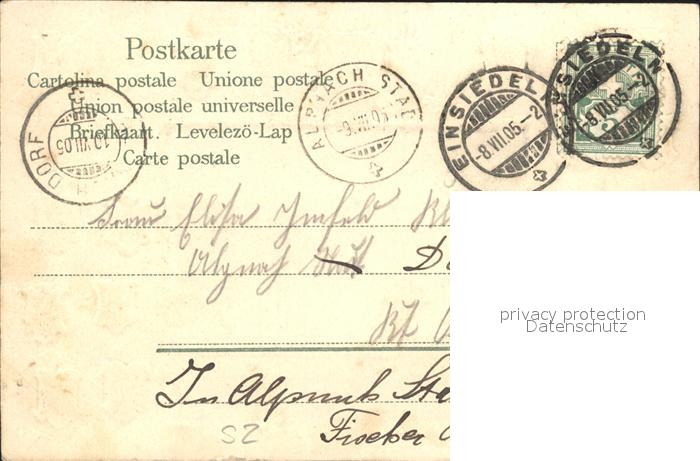 Postkarte
Cartolina postale Unione postale
Union postale universelle
Briefkaart. Levelezö-Lap
Carte postale
DORF
10.VII.05
ALPNACH STAD
-9.VII.05
EINSIEDELN
-8.VII.05.-2
EINSIEDELN
-8.VII.05.-2
5
Frau Elisa Imfeld
Alpnach
Kt
In Alpnach Sta
Fischer
SZ
privacy protection
Datenschutz